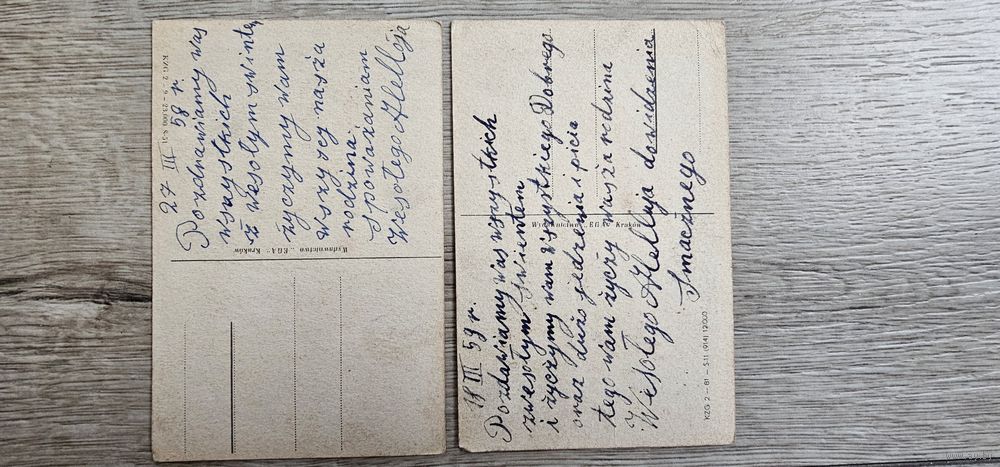 27 III 58 r.
Pozdrawiamy was
wszystkich
z wesołym świntem
życzymy wam
wszyscy nasza
rodzina.
spoważaniam
Wesołego Alelloja
Wydawnictwo „EGA” Kraków
KZG 2 - 9 - 23.000
18 III 59 r.
Pozdawiamy was wszystkich
zwesołym swientem
i życzymy wam wszystkiego Dobrego
oraz dużo jedzenia i picia
tego wam życzy wasza rodzina
Wesołego Alelluja dowidzenia
Smacznego
Wydawnictwo „EGA” Kraków
KZG 2 — 81 — S-11 (914) 12000